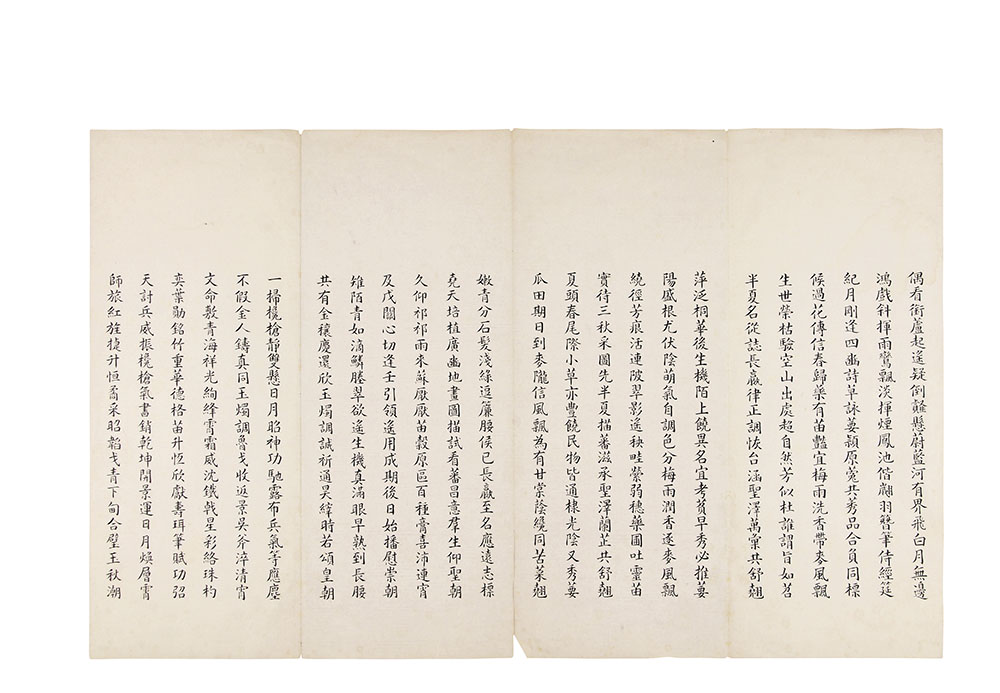 偶看銜蘆起遙疑倒韰懸蔚藍河有界飛白月無邊
鴻戲斜揮雨鸞飄淡揮煙鳳池偕翽羽簪筆侍經筵
紀月剛逢四豳詩草詠葽潁原寃共秀品合負同標
候過花傳信春歸藥有苗豔宜梅雨洗香帶麥風飄
生世榮枯驗空山出處超自然芳似杜誰謂旨如苕
半夏名從誌長嬴律正調恢台涵聖澤萬彙共舒翹
萍泛桐華後生機陌上饒異名宜考蕡早秀必推葽
陽盛根尤伏陰萌氣自調色分梅雨潤香逐麥風飄
繞徑芳痕活連陂翠影遙秧畦縈弱穗藥圃吐靈苗
實待三秋采圖先半夏描蕃滋承聖澤蘭芷共舒翹
夏頭春尾際小草亦豐饒民物皆通棣光陰又秀葽
瓜田期日到麥隴信風飄為有甘棠蔭繞同苦菜翹
嫩青分石髮淺綠逗簾腰候已長嬴至名應遠志標
堯天培植廣豳地畫圖描試看蕃昌意羣生仰聖朝
久仰祁祁雨來蘇厭厭苗穀原區百種膏喜沛連宵
及戊關心切逢壬引領遙用成期後日始播慰崇朝
雉陌青如滴鱗塍翠欲遙生機真滿眼早熟到長腰
共有金穰慶還欣玉燭調誠祈通昊縡時若頌皇朝
一掃欃槍靜雙懸日月昭神功馳露布兵氣等應塵
不假金人鑄真同玉燭調魯戈收返景吳斧淬清霄
文命敷青海祥光絢絳霄霜威沈鐵戟星彩絡珠杓
奕葉勛銘竹重華德格苗升恆欣獻壽珥筆賦功弨
天討兵威振欃槍氣書銷乾坤開景運日月煥層霄
師旅紅旌捷升恒矞采昭韜戈青下旬合璧玉秋潮